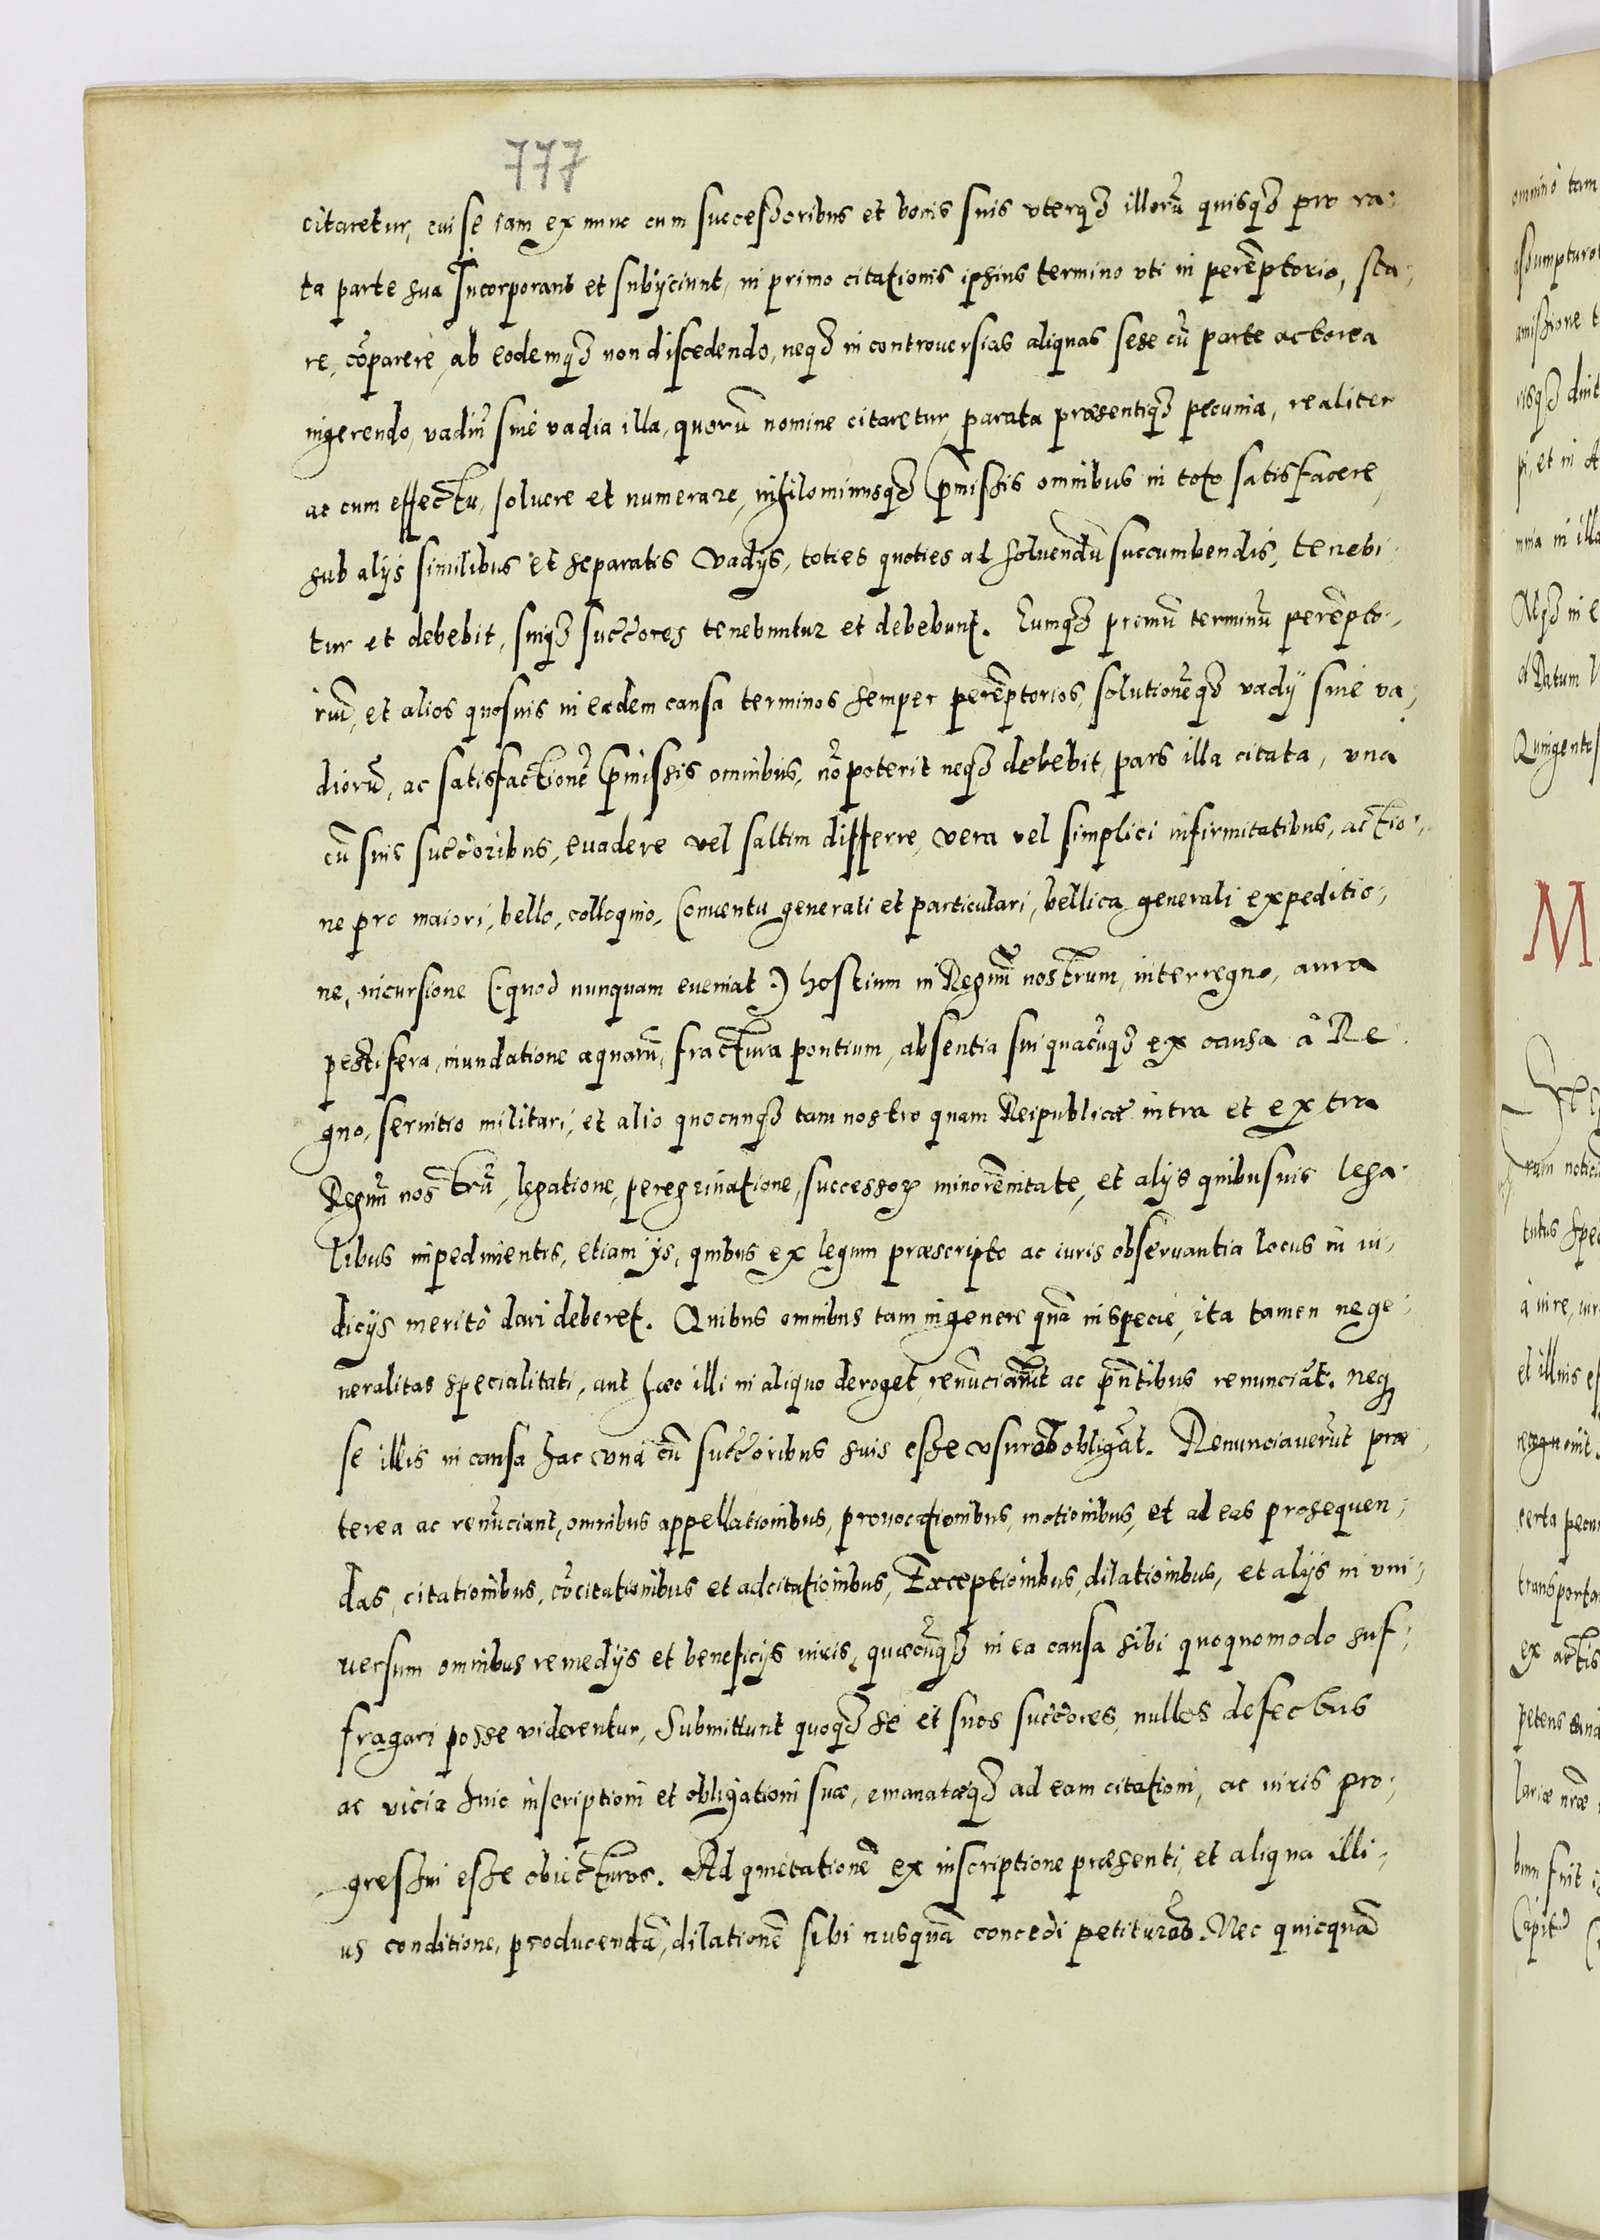 777
citaretur, cui se iam ex nunc cum successoribus et bonis suis uterqȝ illorũ quisqȝ pro ra-
ta parte sua Incorporant et subijciunt, in primo citationis ipsius termino uti in perẽptorio, sta-
re, cõparere, ab eodemqȝ non discedendo, neqȝ in controuersias aliquas sese cũ parte actorea
ingerendo, vadiũ siue vadia illa, quorũ nomine citaretur, parata præsentiqȝ pecunia, realiter
ac cum effectu, soluere et numerare, nihilominusqȝ p̃missis omnibus in toto satisfacere,
sub alijs similibus et separatis vadijs, toties quoties ad soluendũ succumbendis, tenebi-
tur et debebit, suiqȝ succ̃ores tenebuntur et debebunt. Eumqȝ primũ terminũ perẽpto-
riũ, et alios quosuis in eadem causa terminos semper perẽptorios, solutionẽqȝ vadij siue va-
diorũ, ac satisfactionẽ p̃missis omnibus, nõ poterit neqȝ debebit, pars illa citata, una
cũ suis succ̃oribus, euadere vel saltim differre, vera vel simplici infirmitatibus, actio-
ne pro maiori, bello, colloquio, Conuentu generali et particulari, bellica generali expeditio-
ne, incursione (: quod nunquam eueniat :) hostium in Regnũ nostrum, interregno, aura
pestifera, inundatione aquarũ, fractura pontium, absentia sui quacũqȝ ex causa à Re
gno, seruitio militari, et alio quocunqȝ tam nostro quam Reipublicæ intra et extra
Regnũ nostrũ, legatione, peregrinatione, successoꝝ minorẽnitate, et alijs quibusuis lega-
libus impedimentis, etiam ijs, quibus ex legum præscripto ac iuris obseruantia locus in iu-
dicijs meritò dari deberet. Quibus omnibus tam in genere quã in specie, ita tamen ne ge-
neralitas specialitati, aut hæc illi in aliquo deroget, renũciarũt ac p̃ntibus renunciãt. neqȝ
se illis in causa hac unà cũ succ̃oribus suis esse usuros obligãt. Renunciauerũt præ-
terea ac renũciant, omnibus appellationibus, prouocationibus, motionibus, et ad eas prosequen-
das, citationibus, cõcitationibus et adcitationibus, Exceptionibus, dilationibus, et alijs in uni-
uersum omnibus remedijs et beneficijs iuris, quæcũqȝ in ea causa sibi quoquomodo suf-
fragari posse viderentur, Submittunt quoqȝ se et suos succ̃ores, nullos defectus
ac vicia huic inscriptioni et obligationi suæ, emanatæqȝ ad eam citationi, ac iuris pro-
gressui esse obiecturos. Ad quietationẽ ex inscriptione præsenti, et aliqua illi-
us conditione, producendã, dilationẽ sibi nusquã concedi petituros. Nec quicquã
omninò tam
amissione
M
ex actis
Capit̃